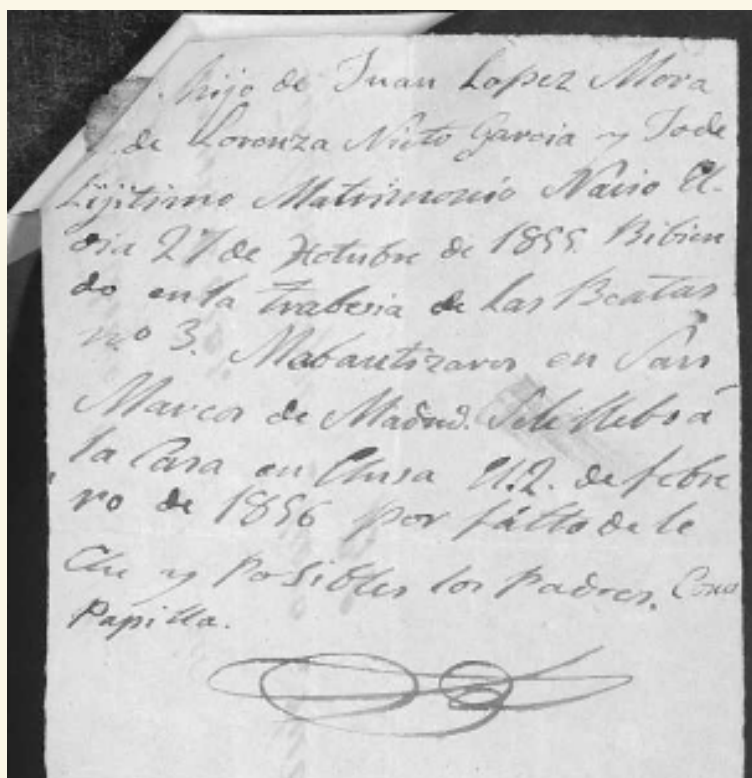 hijo de Juan Lopez Mora
de Lorenza Nieto Garcia y To de
Lijitimo Matrimonio Nacio El
dia 27 de Octubre de 1855. Bibien
do en la trabesia de Las Beatas
n.o 3. Mabautizaron en San
Marcos de Madrid. Sele llebo a
la Casa en Clusa El 2. de febre
ro de 1856 por falto de le
Che y Posibles los Padres. Come
Papilla.